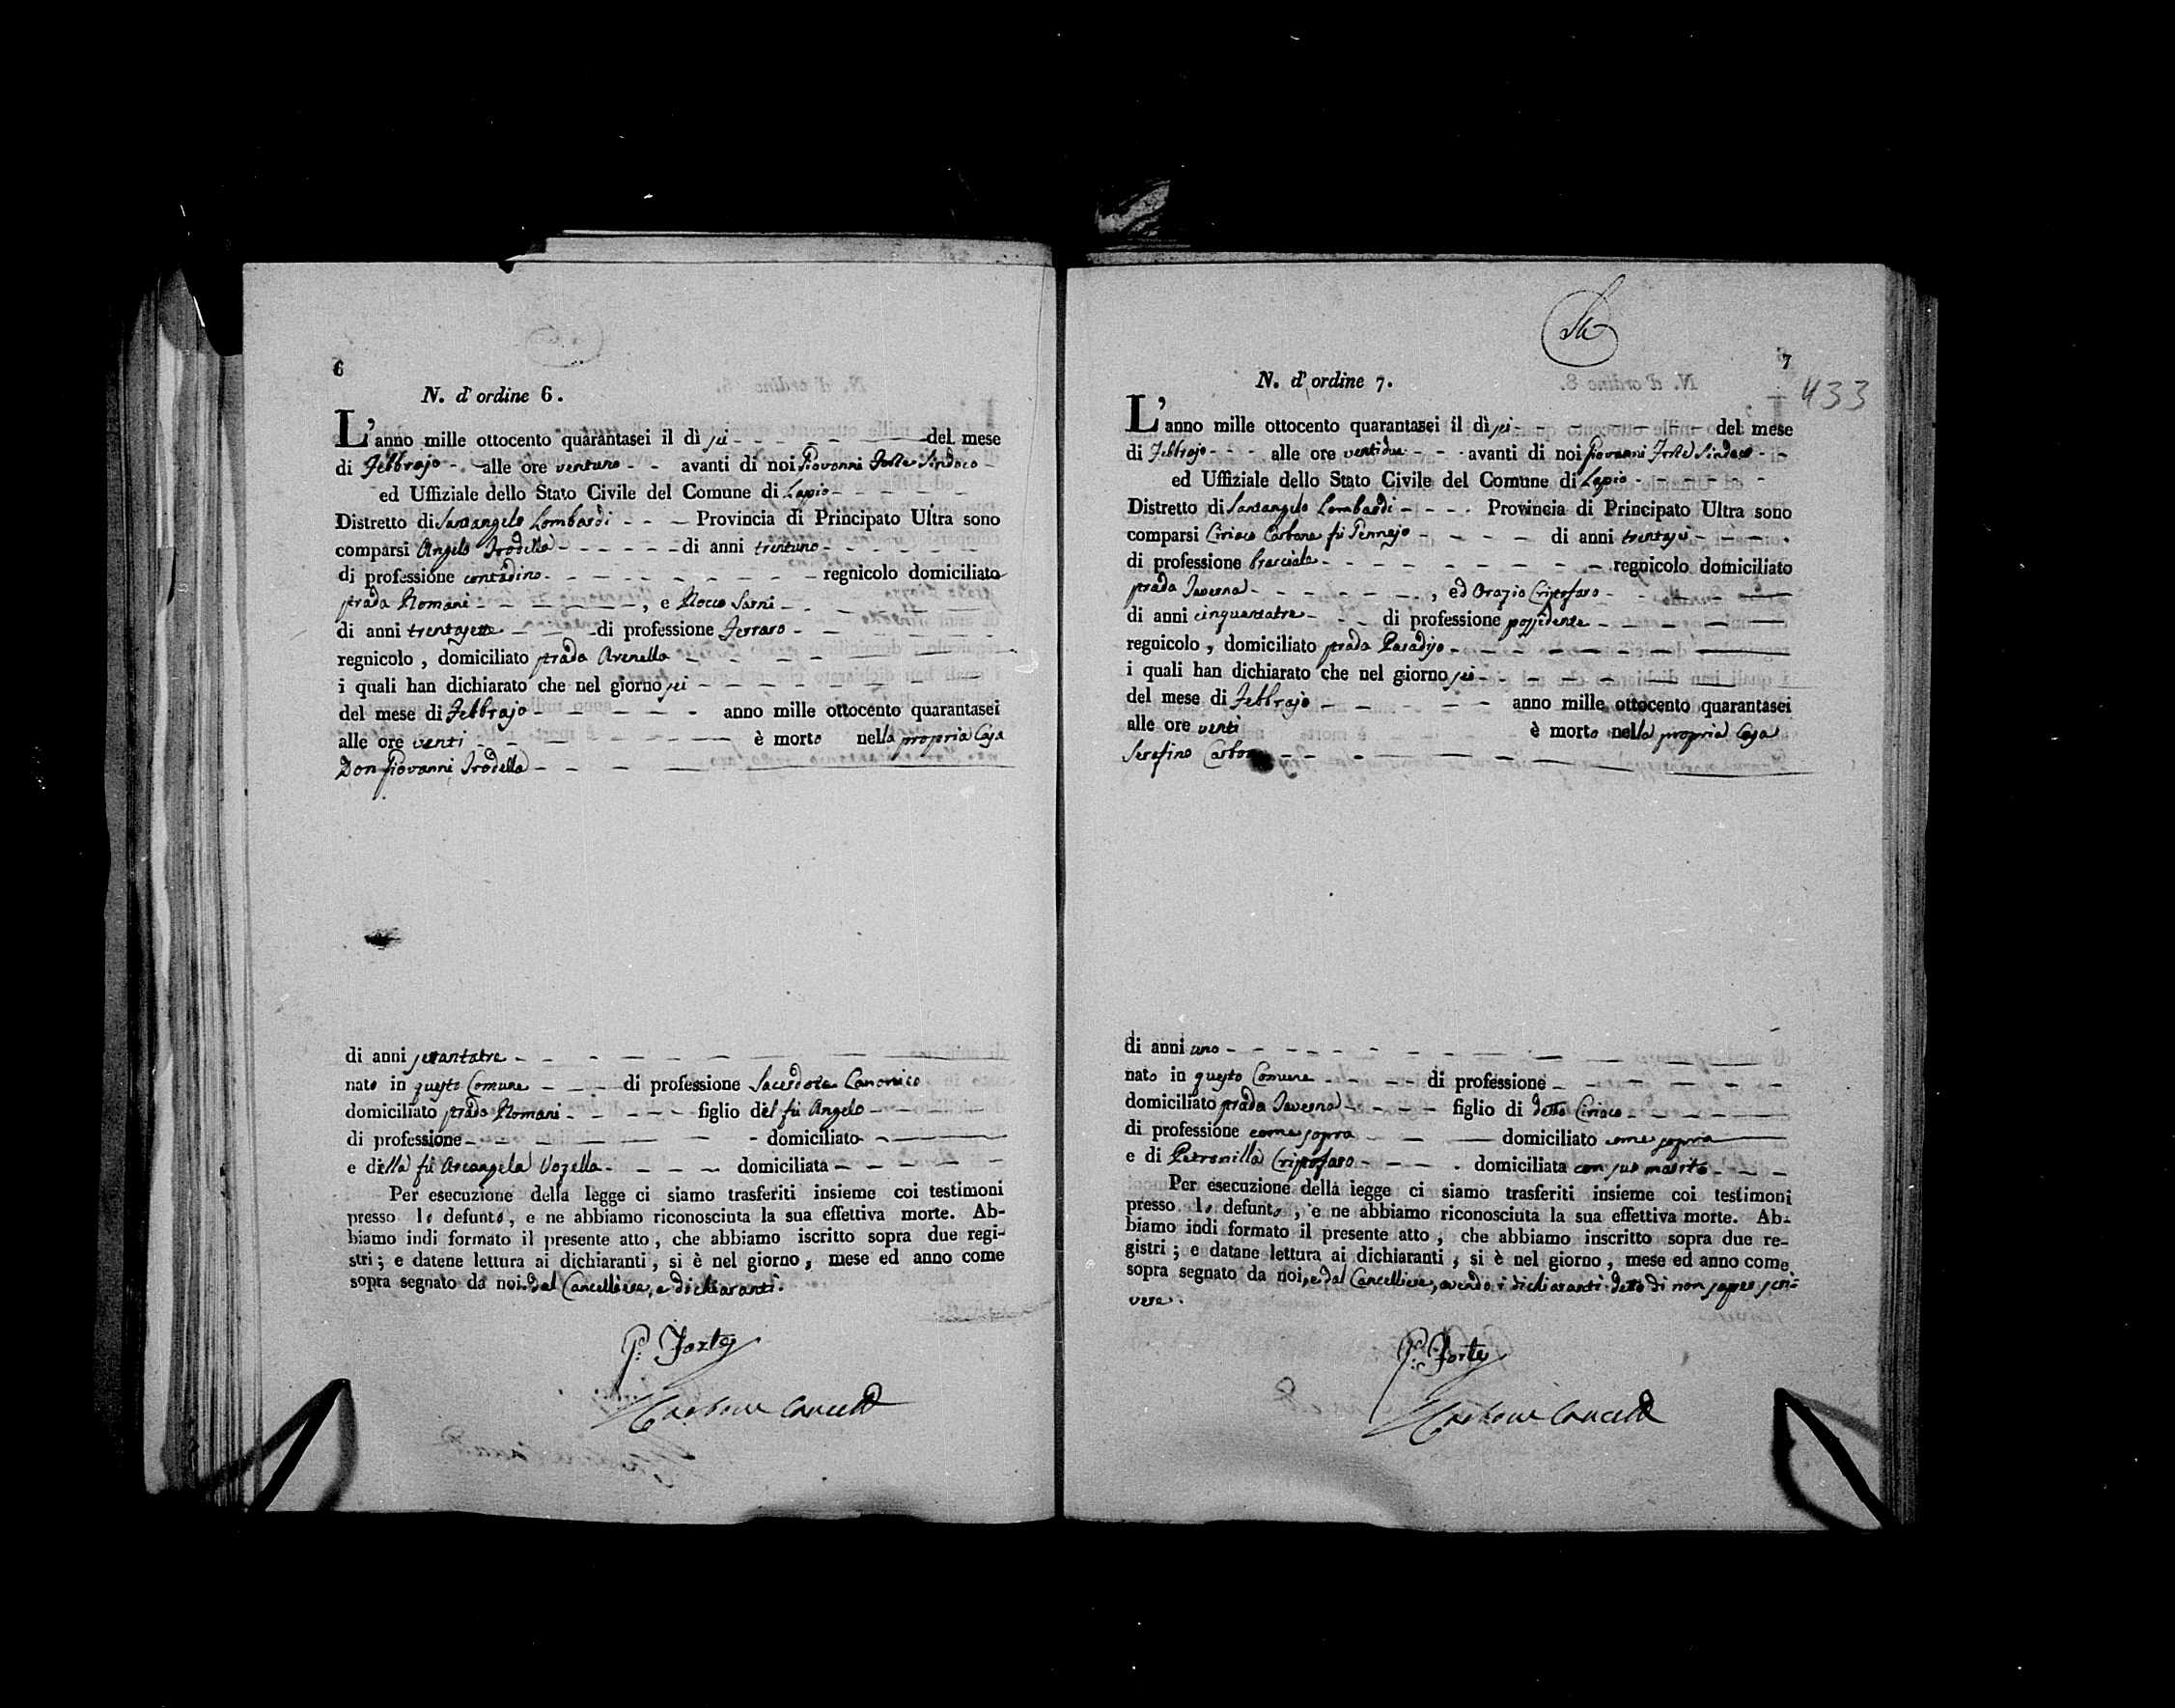 6
N. d' ordine 6.
L'anno mille ottocento quarantasei il dì sei del mese
di Febbrajo alle ore ventuno avanti di noi Giovanni Forte Sindaco
ed Uffiziale dello Stato Civile del Comune di Lapio
Distretto di Santangelo Lombardi Provincia di Principato Ultra sono
comparsi Angelo Trodella di anni trentuno
di professione contadino regnicolo domiciliato
strada Romani, e Rocco Sarni
di anni trentasette di professione Ferraro
regnicolo, domiciliato strada Arenella
i quali han dichiarato che nel giorno sei
del mese di Febbrajo anno mille ottocento quarantasei
alle ore venti è morto nella propria Casa
Don Giovanni Trodella
di anni
nato in questo Comune di professione Sacerdote Canonico
domiciliato strada Romani figlio del fù Angelo
di professione domiciliato
e della fù Arcangela Vozella domiciliata
Per esecuzione della legge ci siamo trasferiti insieme coi testimoni
presso lo defunto, e ne abbiamo riconosciuta la sua effettiva morte. Ab-
biamo indi formato il presente atto, che abbiamo iscritto sopra due regi-
stri; e datene lettura ai dichiaranti, si è nel giorno, mese ed anno come
sopra segnato da noi, dal Cancelliere, e dichiaranti.
Forte
7
433
N. d' ordine 7.
L'anno mille ottocento quarantasei il dì sei del mese
di Febbrajo alle ore ventidue avanti di noi Giovanni Forte Sindaco
ed Uffiziale dello Stato Civile del Comune di Lapio
Distretto di Santangelo Lombardi Provincia di Principato Ultra sono
comparsi Ciriaco Carbone fù Gennajo di anni trentasei
di professione bracciale regnicolo domiciliato
strada Taverna, ed Orazio Cristofaro
di anni cinquantatre di professione possidente
regnicolo, domiciliato strada Paradiso
i quali han dichiarato che nel giorno sei
del mese di Febbrajo anno mille ottocento quarantasei
alle ore venti è morto nella propria Casa
Serafino Carbone
di anni uno
nato in questo Comune di professione
domiciliato strada Taverna figlio di detto Ciriaco
di professione come sopra domiciliato come sopra
e di Petronilla Cristofaro domiciliata con suo marito
Per esecuzione della legge ci siamo trasferiti insieme coi testimoni
presso lo defunto, e ne abbiamo riconosciuta la sua effettiva morte. Ab-
biamo indi formato il presente atto, che abbiamo inscritto sopra due re-
gistri; e datane lettura ai dichiaranti, si è nel giorno, mese ed anno come
sopra segnato da noi, e dal Cancelliere, avendo i dichiaranti detto di non saper scri-
vere.
Forte